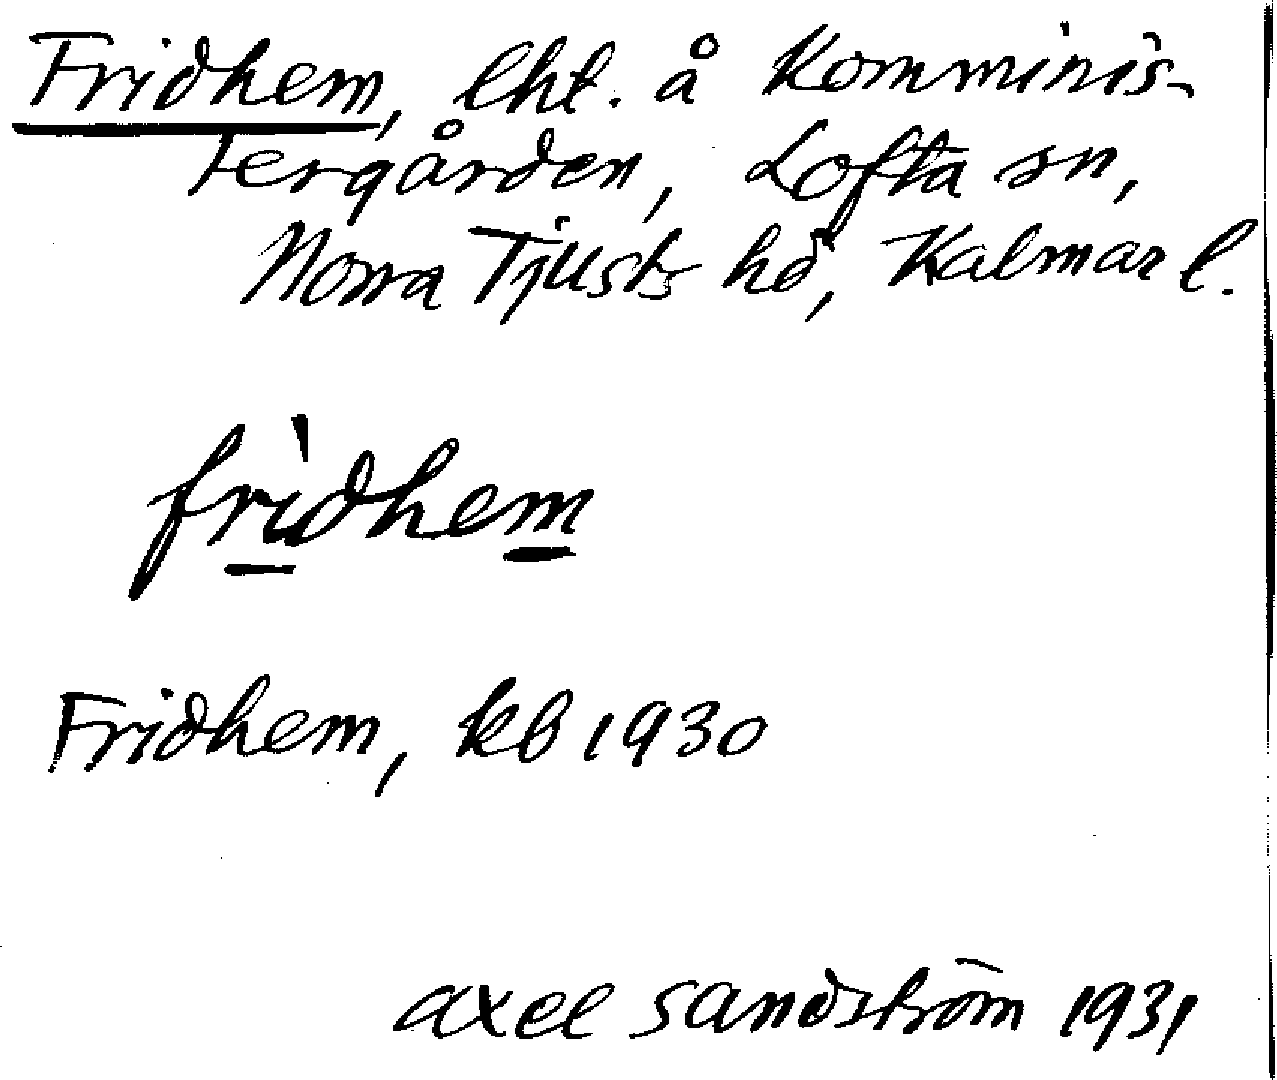 Fridhem, lht. å Komminis-
tergården, Lofta sn,
Norra Tjusts hd, Kalmar l.
frìdhem
Fridhem, kb 1930
axel sandström 1931